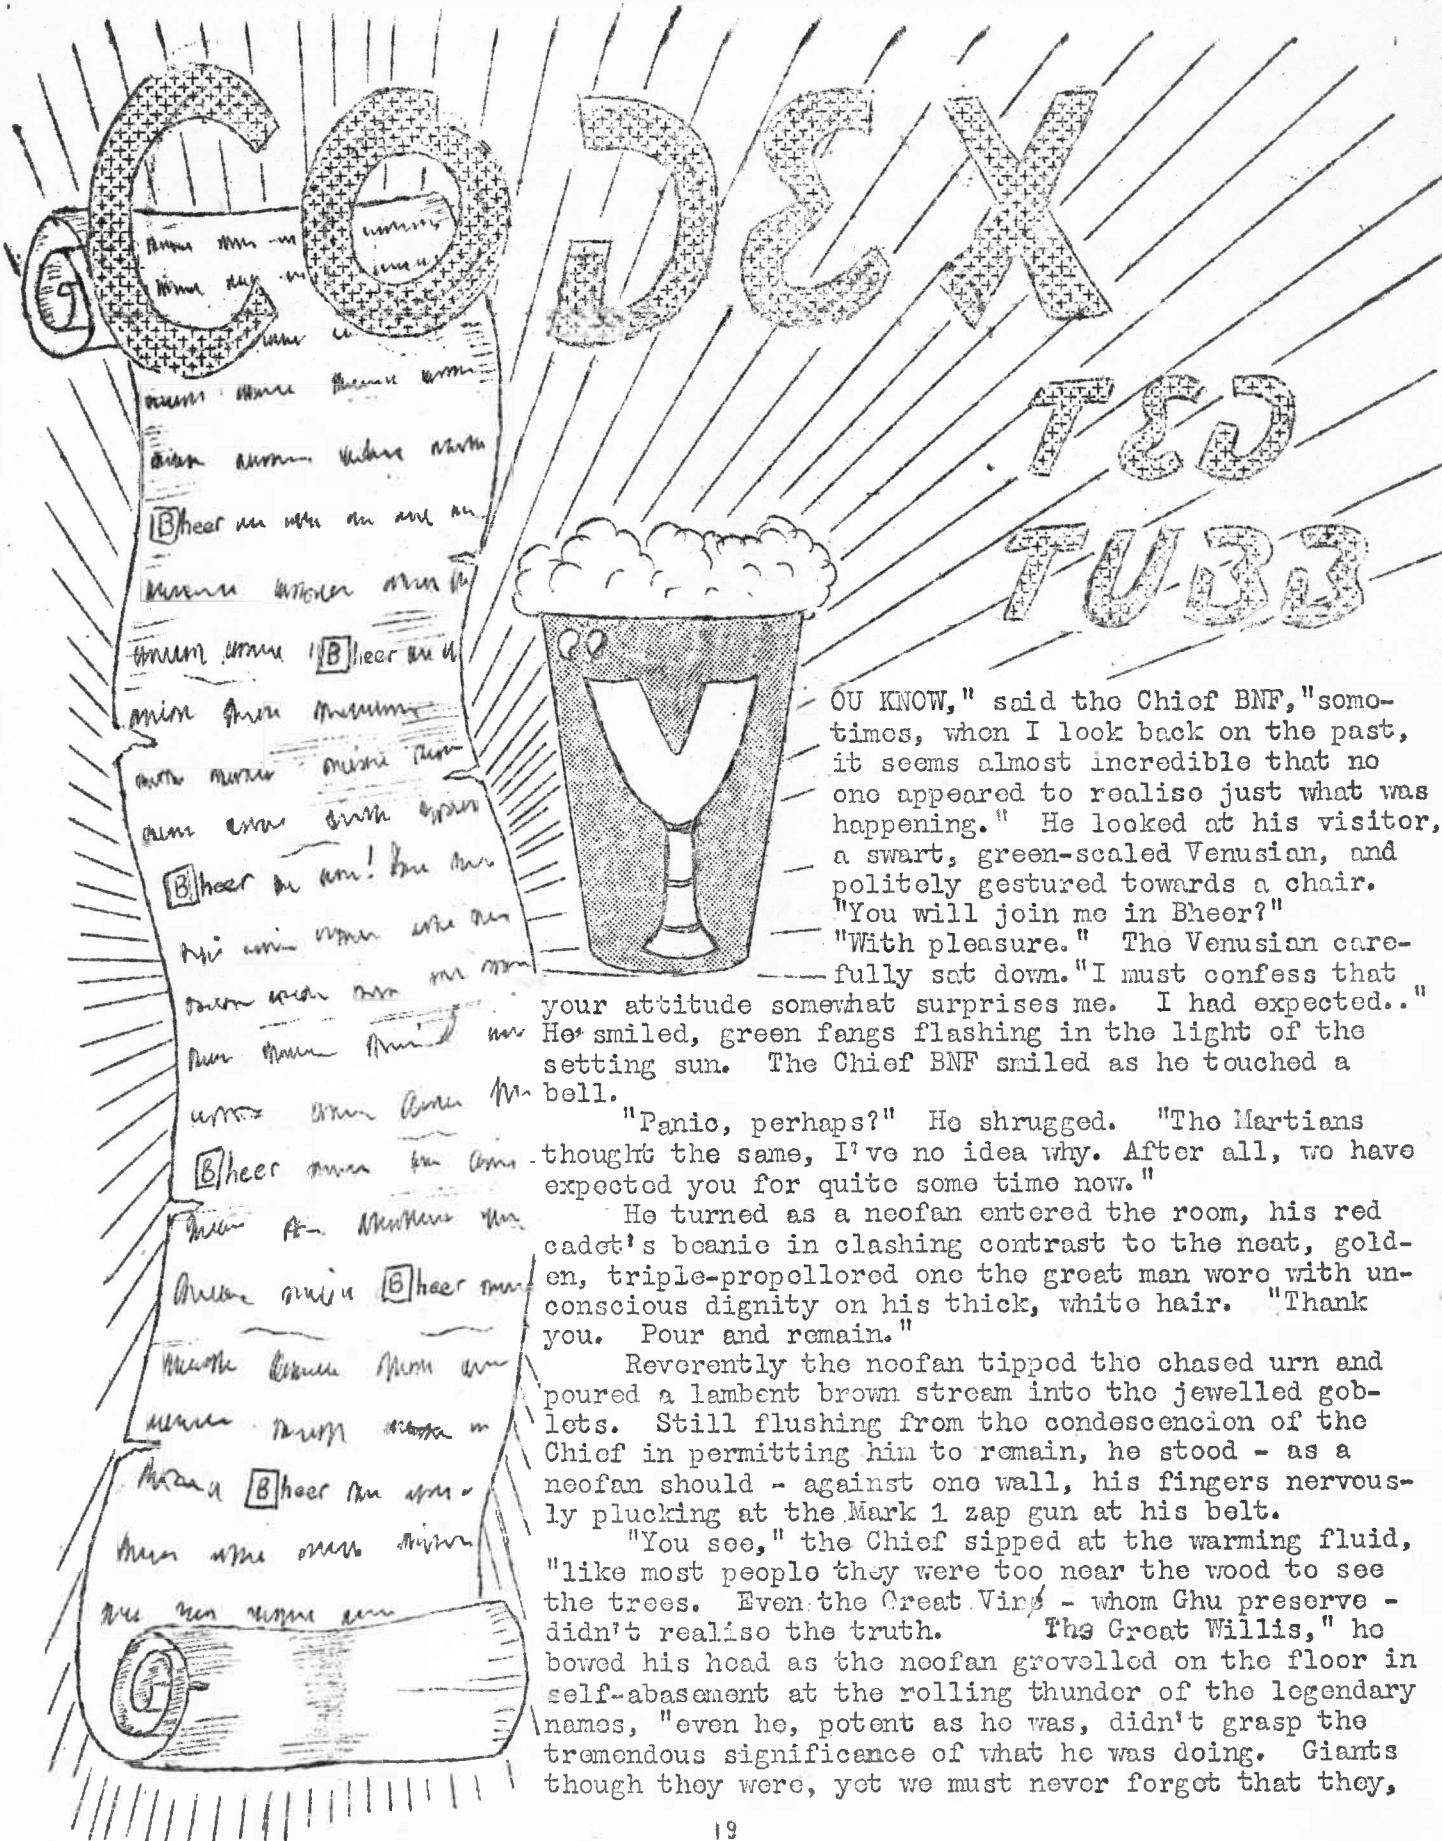 CODEX
TED
TUBB
Bheer
Bheer
Bheer
Bheer
Bheer
Bheer
"YOU KNOW," said the Chief BNF, "some-
times, when I look back on the past,
it seems almost incredible that no
one appeared to realise just what was
happening." He looked at his visitor,
a swart, green-scaled Venusian, and
politely gestured towards a chair.
"You will join me in Bheer?"
"With pleasure." The Venusian care-
fully sat down. "I must confess that
your attitude somewhat surprises me. I had expected.."
He smiled, green fangs flashing in the light of the
setting sun. The Chief BNF smiled as he touched a
bell.
"Panic, perhaps?" He shrugged. "The Martians
thought the same, I've no idea why. After all, we have
expected you for quite some time now."
He turned as a neofan entered the room, his red
cadet's beanie in clashing contrast to the neat, gold-
en, triple-propellored one the great man wore with un-
conscious dignity on his thick, white hair. "Thank
you. Pour and remain."
Reverently the neofan tipped the chased urn and
poured a lambent brown stream into the jewelled gob-
lets. Still flushing from the condescencion of the
Chief in permitting him to remain, he stood - as a
neofan should - against one wall, his fingers nervous-
ly plucking at the Mark 1 zap gun at his belt.
"You see," the Chief sipped at the warming fluid,
"like most people they were too near the wood to see
the trees. Even the Great - whom Ghu preserve -
didn't realise the truth. The Great Willis," he
bowed his head as the neofan grovelled on the floor in
self-abasement at the rolling thunder of the legendary
names, "even he, potent as he was, didn't grasp the
tremendous significance of what he was doing. Giants
though they were, yet we must never forget that they,
19